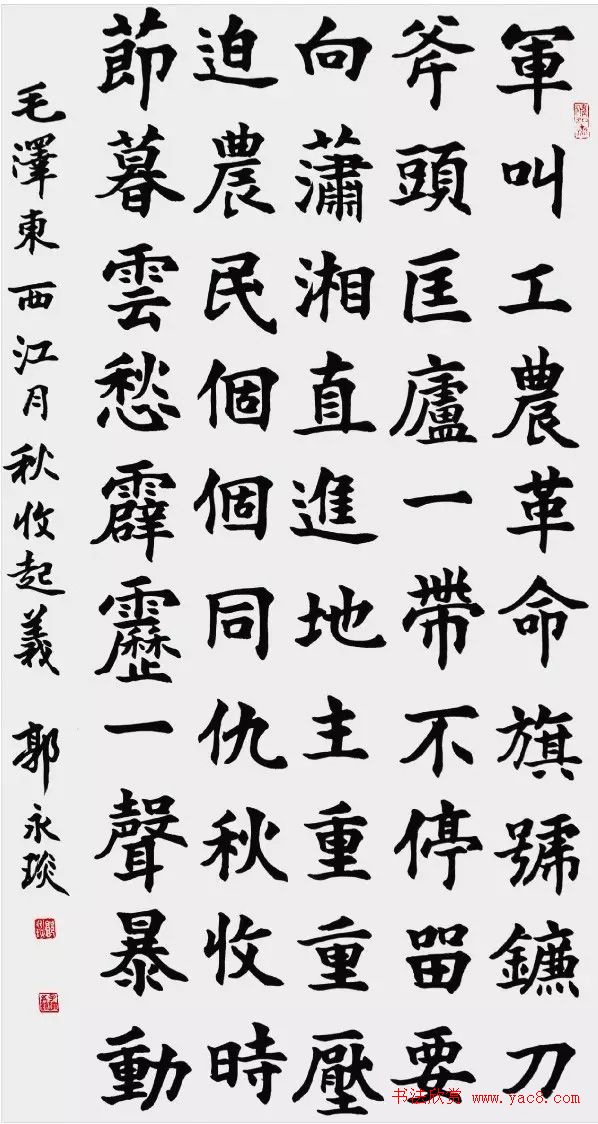 軍叫工農革命旗號鐮刀
斧頭匡廬一帶不停畱要
向瀟湘直進地主重重壓
迫農民個個同仇秋收時
節暮雲愁霹靂一聲暴動
毛澤東西江月秋收起義 郭永琰
书法欣赏 www.yac8.com